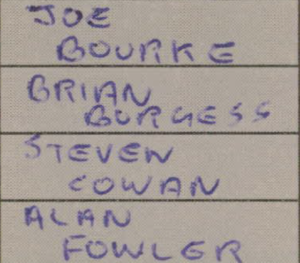 JOE
BOURKE
BRIAN
BURGESS
STEVEN
COWAN
ALAN
FOWLER